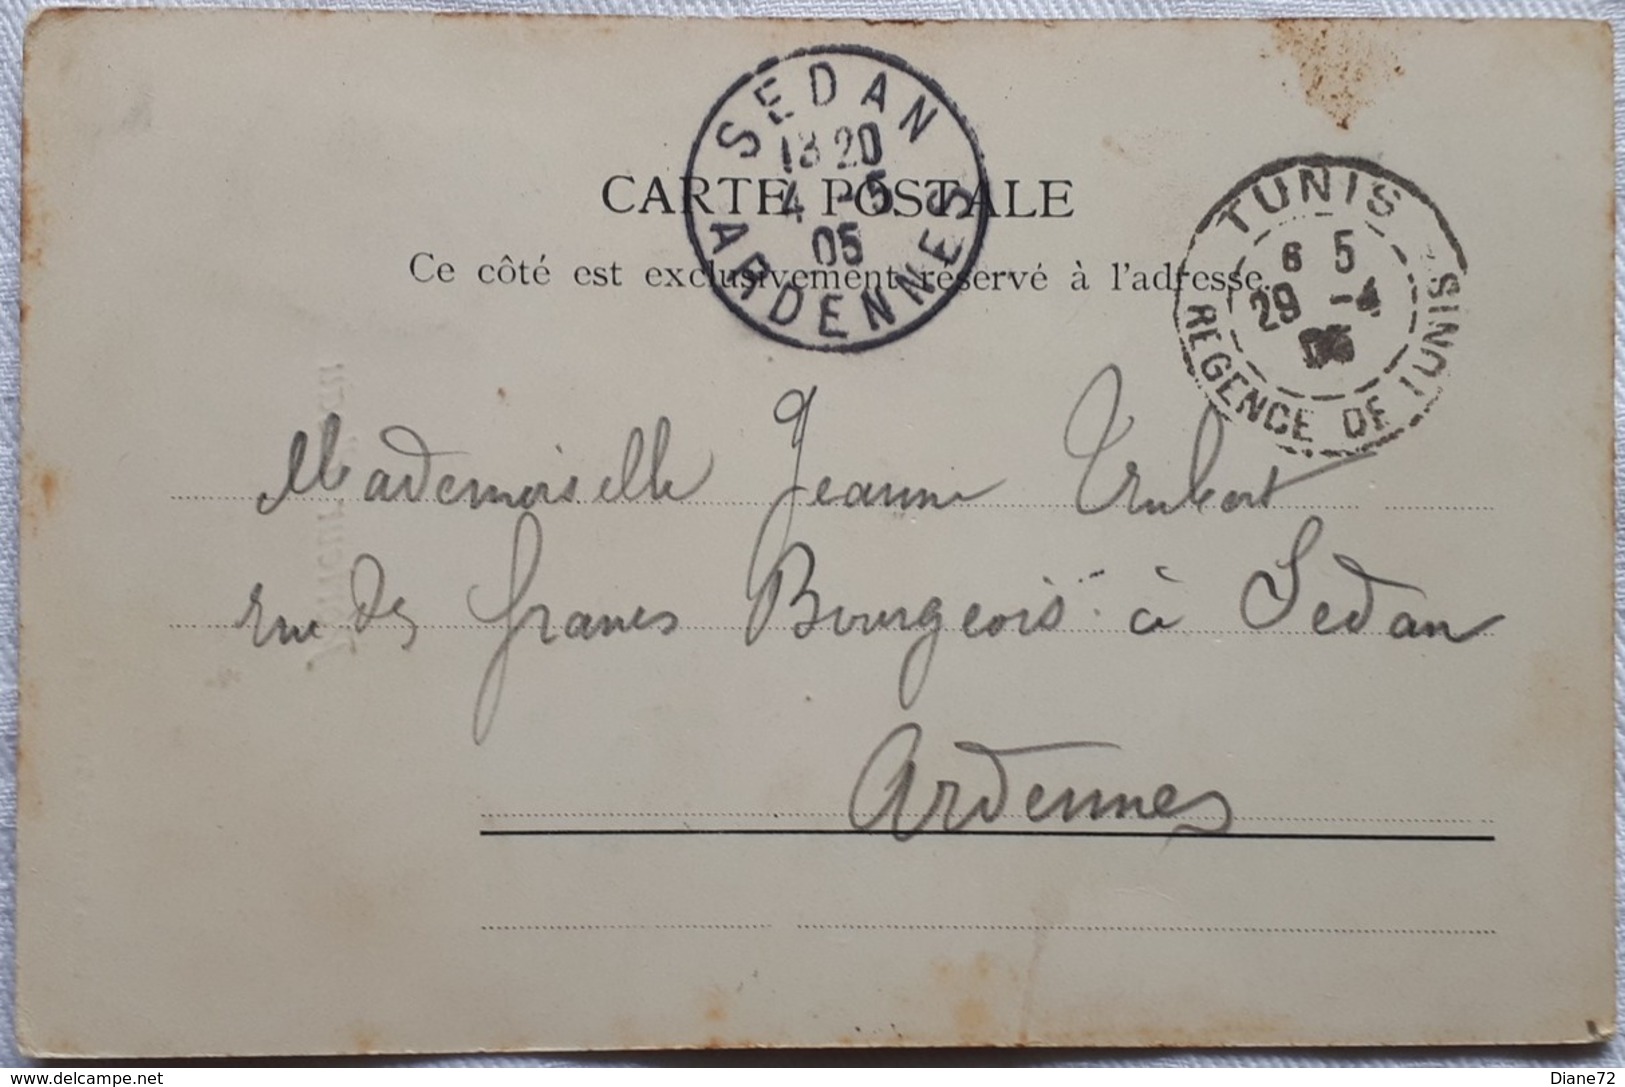 SEDAN
13 20
4 -5
05
ARDENNES
TUNIS
6 5
29 -4
05
REGENCE DE TUNIS
CARTE POSTALE
Ce côté est exclusivement réservé à l'adresse.
Mademoiselle Jeanne
rue des francs Bourgeois à Sedan
Ardennes
Diane72